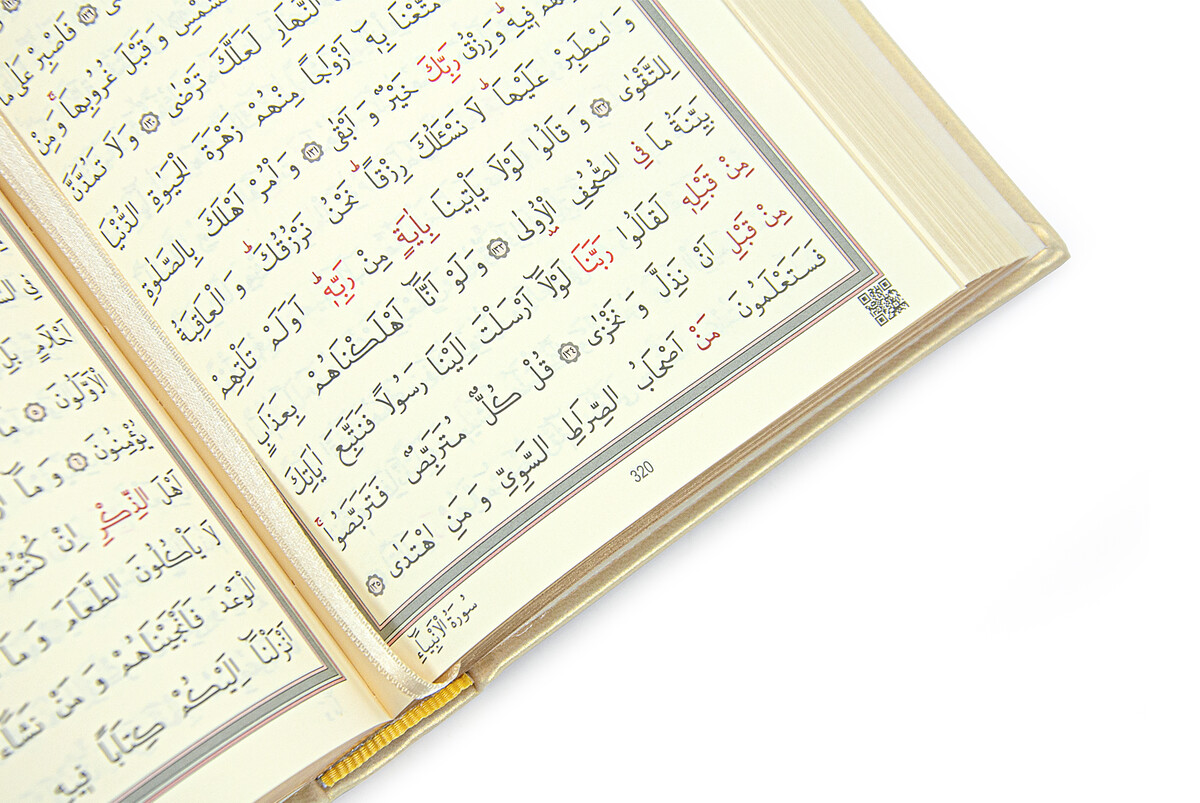 ﴿١٢٩﴾ فَاصْبِرْ عَلٰى مَا
الشَّمْسِ وَ قَبْلَ غُرُوبِهَاۚ وَ مِنْ
النَّهَارِ لَعَلَّكَ تَرْضٰى ﴿١٣٠﴾ وَ لَا تَمُدَّنَّ
مَتَّعْنَا بِهٖٓ اَزْوَاجًا مِنْهُمْ زَهْرَةَ الْحَيٰوةِ الدُّنْيَا
فٖيهِۜ وَ رِزْقُ رَبِّكَ خَيْرٌ وَ اَبْقٰى ﴿١٣١﴾ وَ أْمُرْ اَهْلَكَ بِالصَّلٰوةِ
وَ اصْطَبِرْ عَلَيْهَاۜ لَا نَسْـَٔلُكَ رِزْقًاۜ نَحْنُ نَرْزُقُكَۜ وَ الْعَاقِبَةُ
لِلتَّقْوٰى ﴿١٣٢﴾ وَ قَالُوا لَوْلَا يَأْتٖينَا بِاٰيَةٍ مِنْ رَبِّهٖۜ اَوَلَمْ تَأْتِهِمْ
بَيِّنَةُ مَا فِي الصُّحُفِ الْاُولٰى ﴿١٣٣﴾ وَ لَوْ اَنَّٓا اَهْلَكْنَاهُمْ بِعَذَابٍ
مِنْ قَبْلِهٖ لَقَالُوا رَبَّنَا لَوْلَٓا اَرْسَلْتَ اِلَيْنَا رَسُولًا فَنَتَّبِعَ اٰيَاتِكَ
مِنْ قَبْلِ اَنْ نَذِلَّ وَ نَخْزٰى ﴿١٣٤﴾ قُلْ كُلٌّ مُتَرَبِّصٌ فَتَرَبَّصُواۚ
فَسَتَعْلَمُونَ مَنْ اَصْحَابُ الصِّرَاطِ السَّوِيِّ وَ مَنِ اهْتَدٰى ﴿١٣٥﴾
320
سُورَةُ الْاَنْبِيَٓاءِ
اَحْلَامٍ
الْاَوَّلُونَ ﴿٥﴾
يُؤْمِنُونَ ﴿٦﴾ وَ مَٓا
اَهْلَ الذِّكْرِ اِنْ كُنْتُمْ
لَا يَأْكُلُونَ الطَّعَامَ وَ مَا
الْوَعْدَ فَاَنْجَيْنَاهُمْ وَ مَنْ نَشَٓاءُ
اَنْزَلْنَٓا اِلَيْكُمْ كِتَابًا فٖيهِ